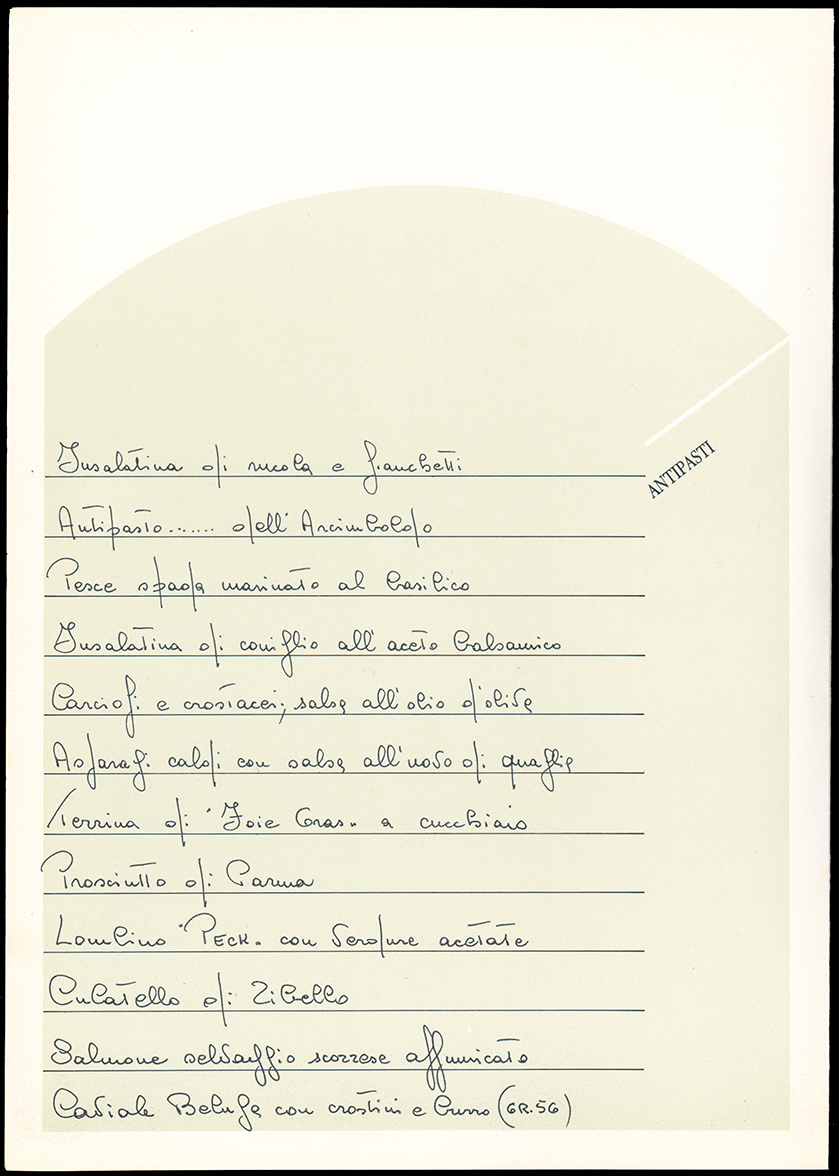 ANTIPASTI
Insalatina di rucola e gianchetti
Antipasto....... dell'Arcimboldo
Pesce spada marinato al basilico
Insalatina di coniglio all'aceto balsamico
Carciofi e crostacei, salsa all'olio d'oliva
Asparagi caldi con salsa all'uovo di quaglia
Terrina di "Foie Gras" a cucchiaio
Prosciutto di Parma
Lombino "PECK" con verdure acetate
Culatello di Zibello
Salmone selvaggio scozzese affumicato
Caviale Beluga con crostini e burro (GR.56)